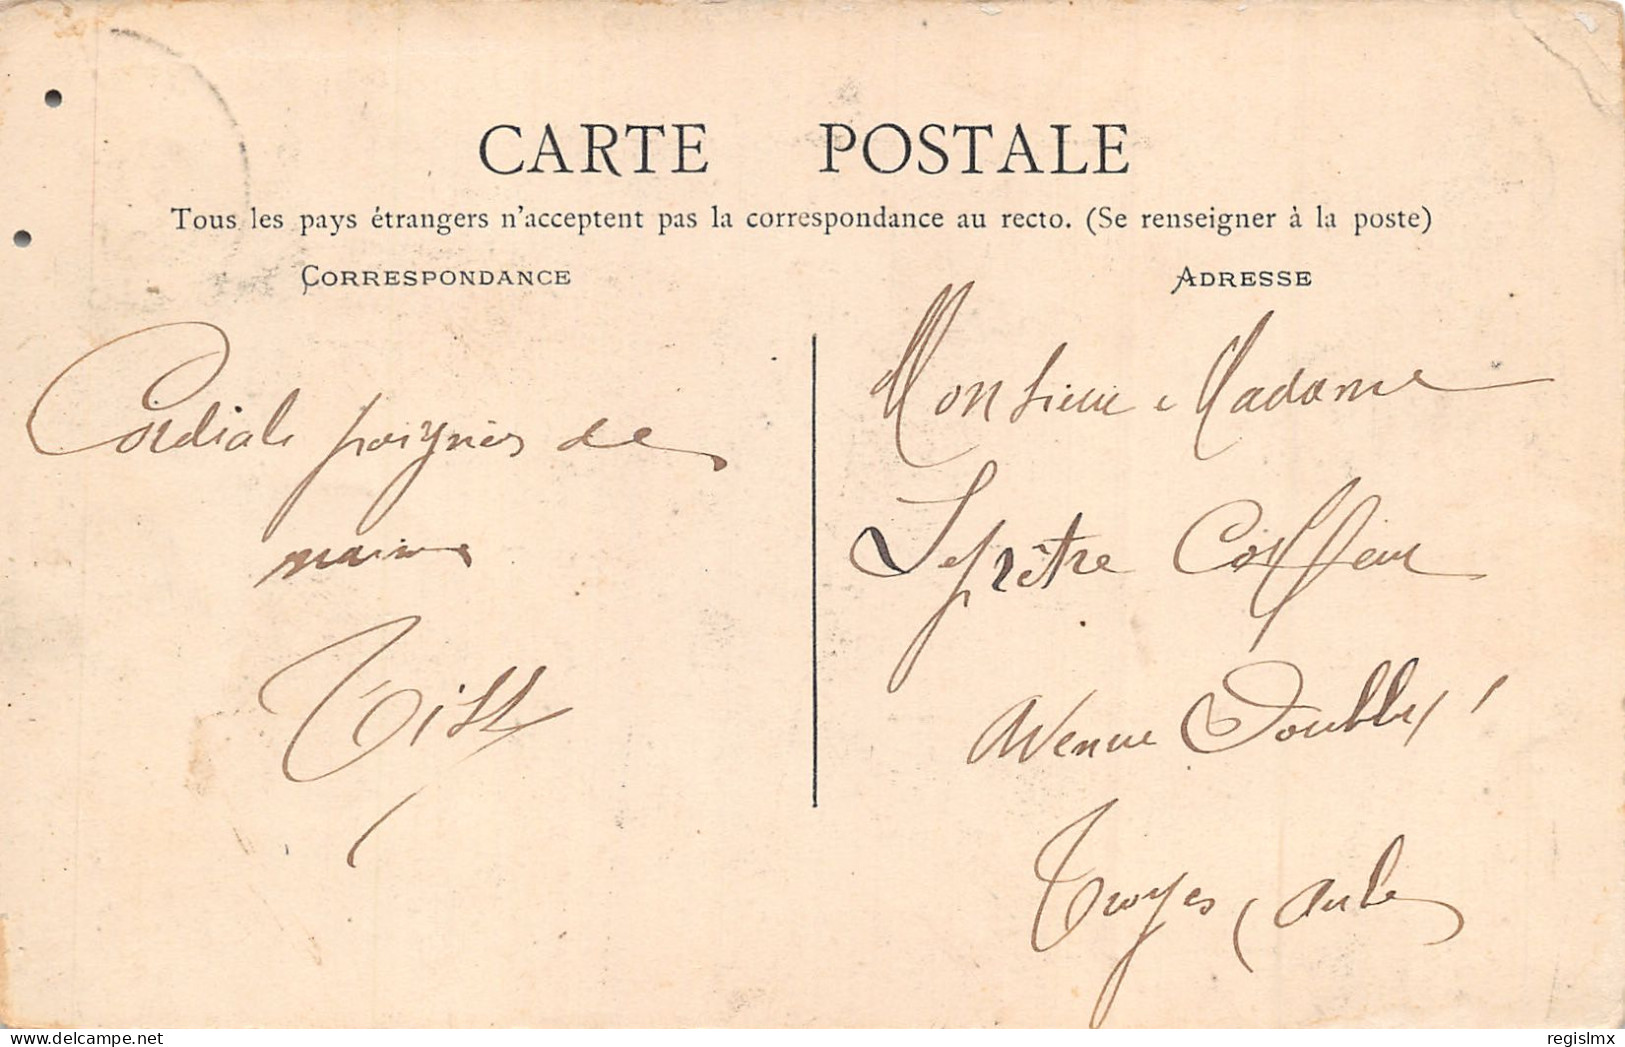 CARTE POSTALE
Tous les pays étrangers n'acceptent pas la correspondance au recto. (Se renseigner à la poste)
CORRESPONDANCE
Cordiale poignés de
mains
ADRESSE
Monsieur e Madame
Leprêtre Coiffeur
Avenue
Troyes (Aube
delcampe.net
regislmx